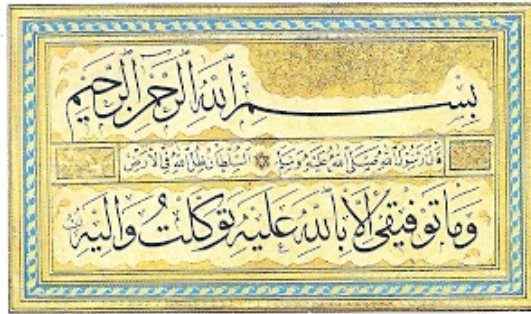 بسم الله الرحمن الرحيم
قال رسول الله صلى الله عليه وسلم السلطان ظل الله في الارض
وما توفيقي الا بالله عليه توكلت واليه